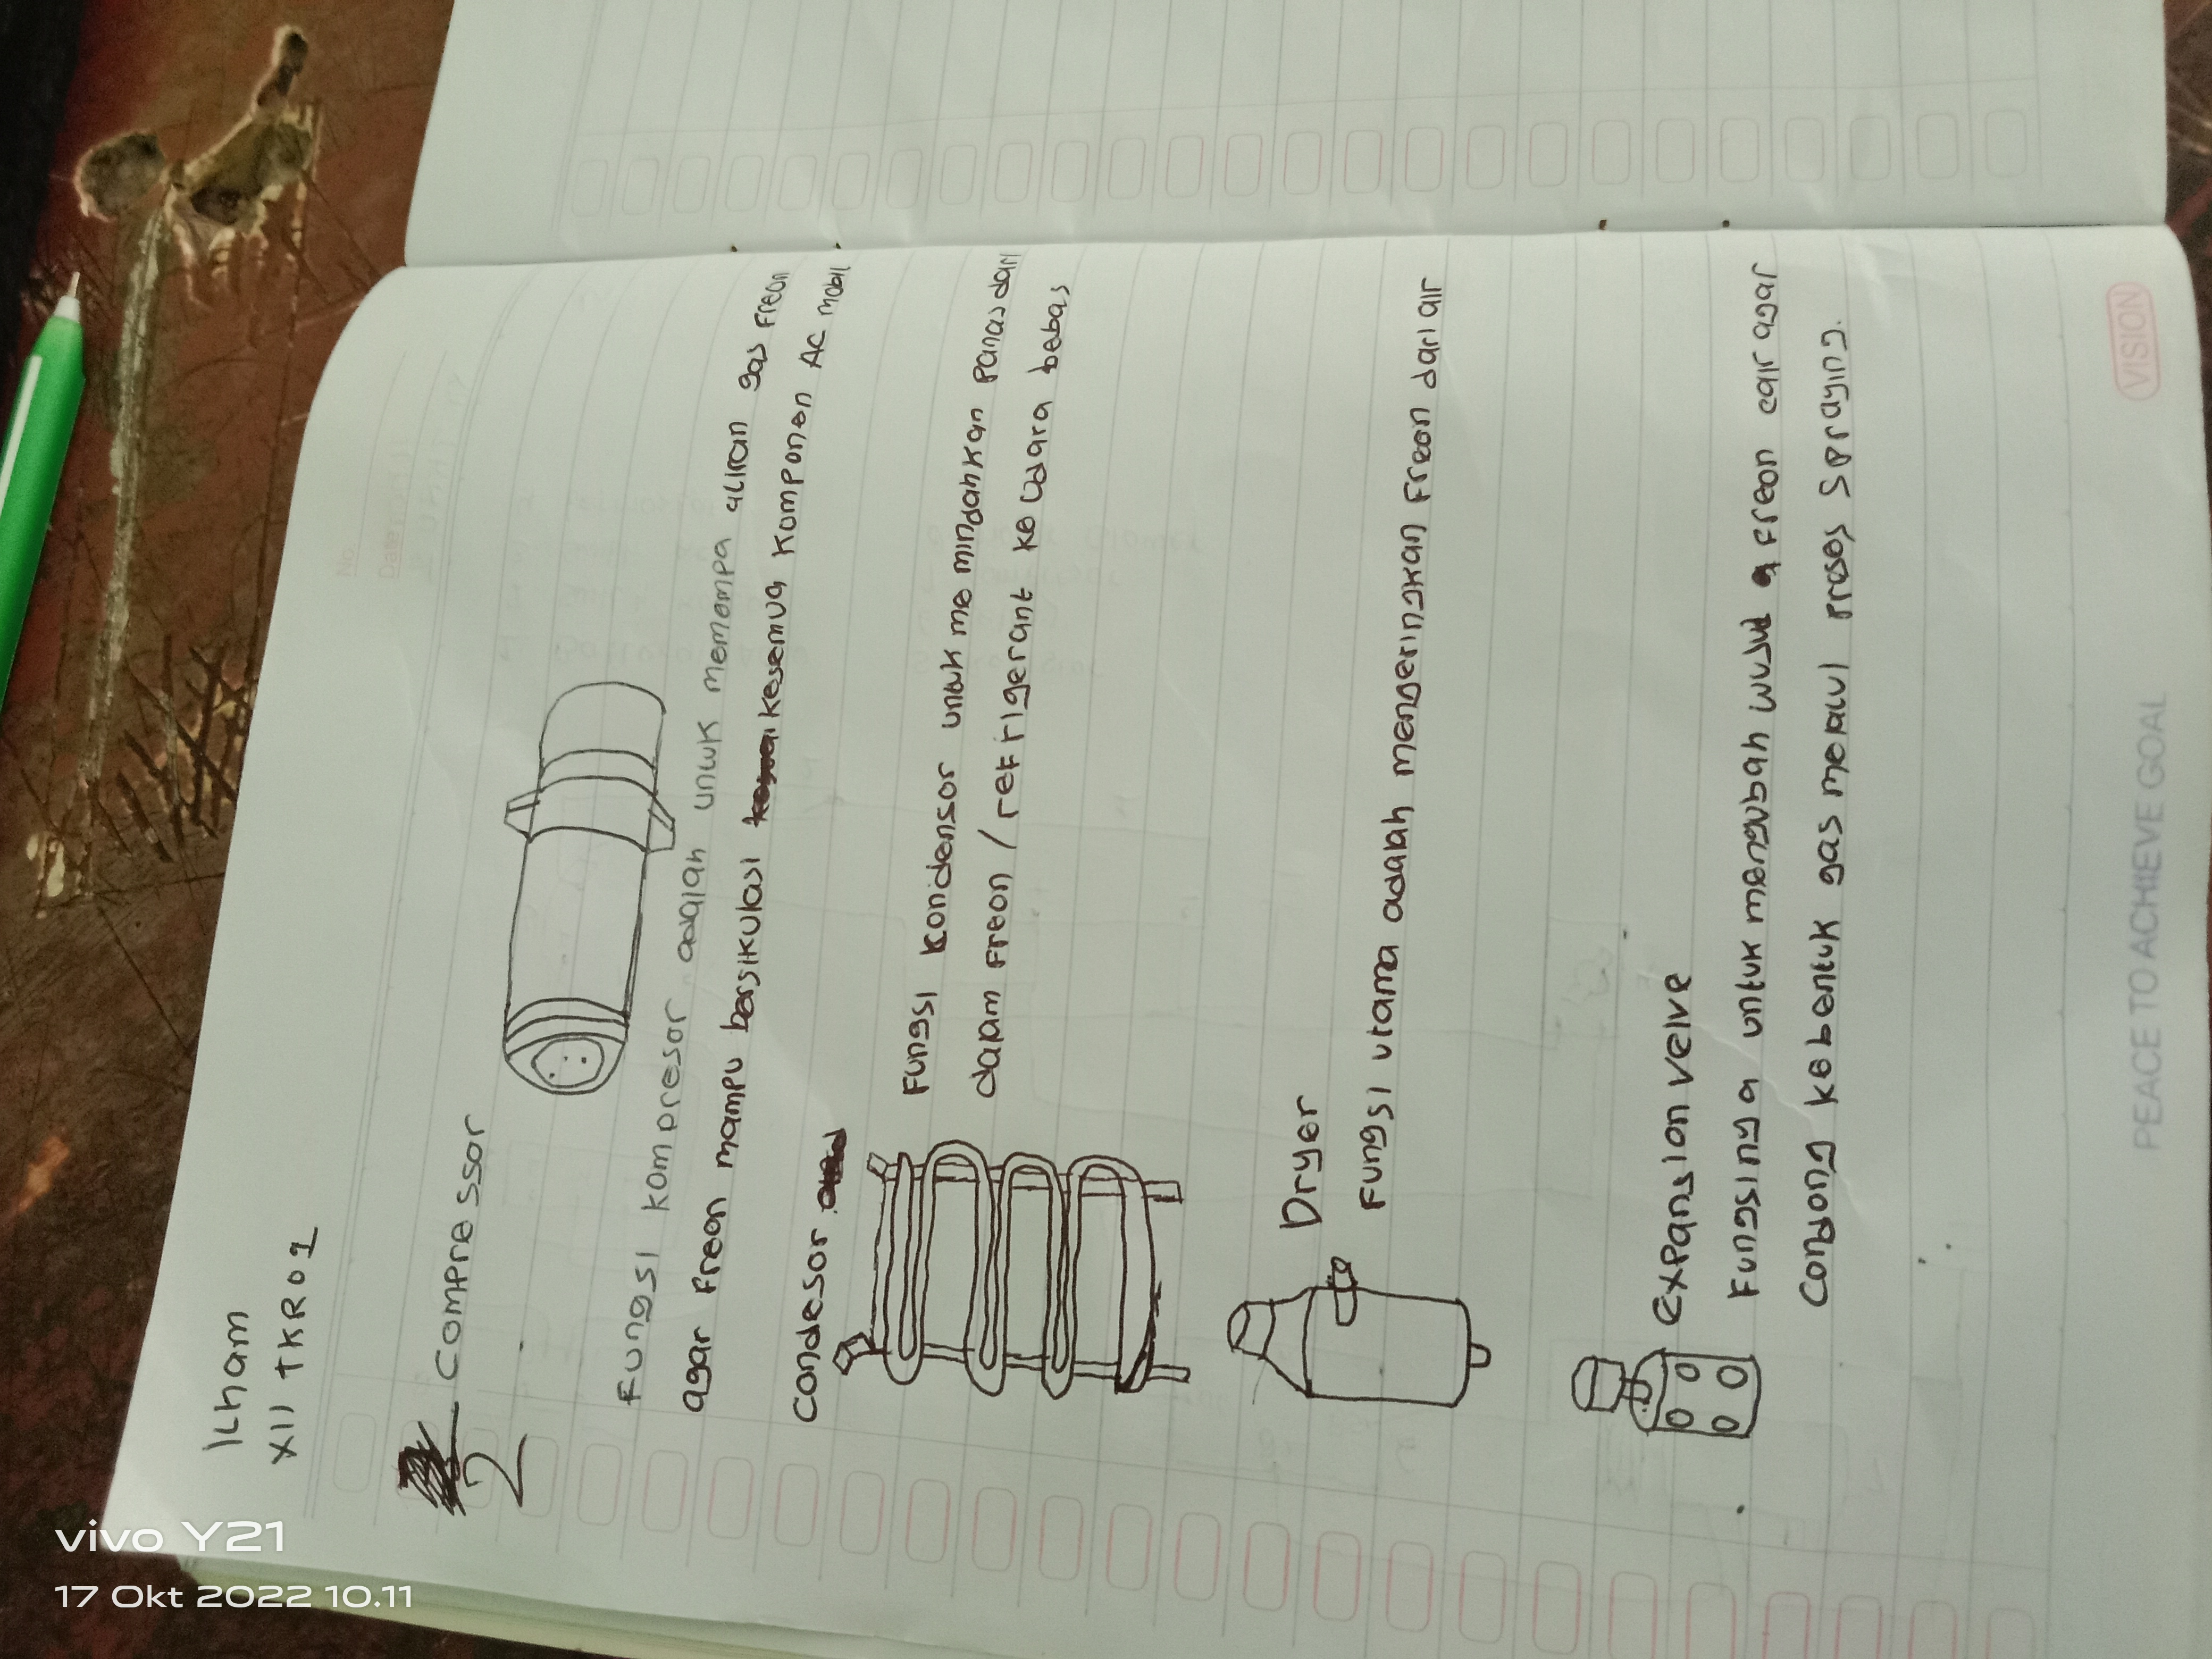 Ilham
XII TKR 01
No.
Date
2 Compressor
Fungsi kompresor adalah untuk memompa aliran gas Freon
agar Freon mampu bersikulasi kesemua komponen AC mobil
Condesor
Fungsi Konidensor untuk me mindahkan panas dari
dalam Freon / refrigerant ke udara bebas
Dryer
Fungsi utama adalah mengeringkan Freon dari air
expansion velve
Fungsinya untuk mengubah wujud Freon cair agar
Condong kebentuk gas melalui proses Spraying.
VISION
PEACE TO ACHIEVE GOAL
vivo Y21
17 Okt 2022 10.11